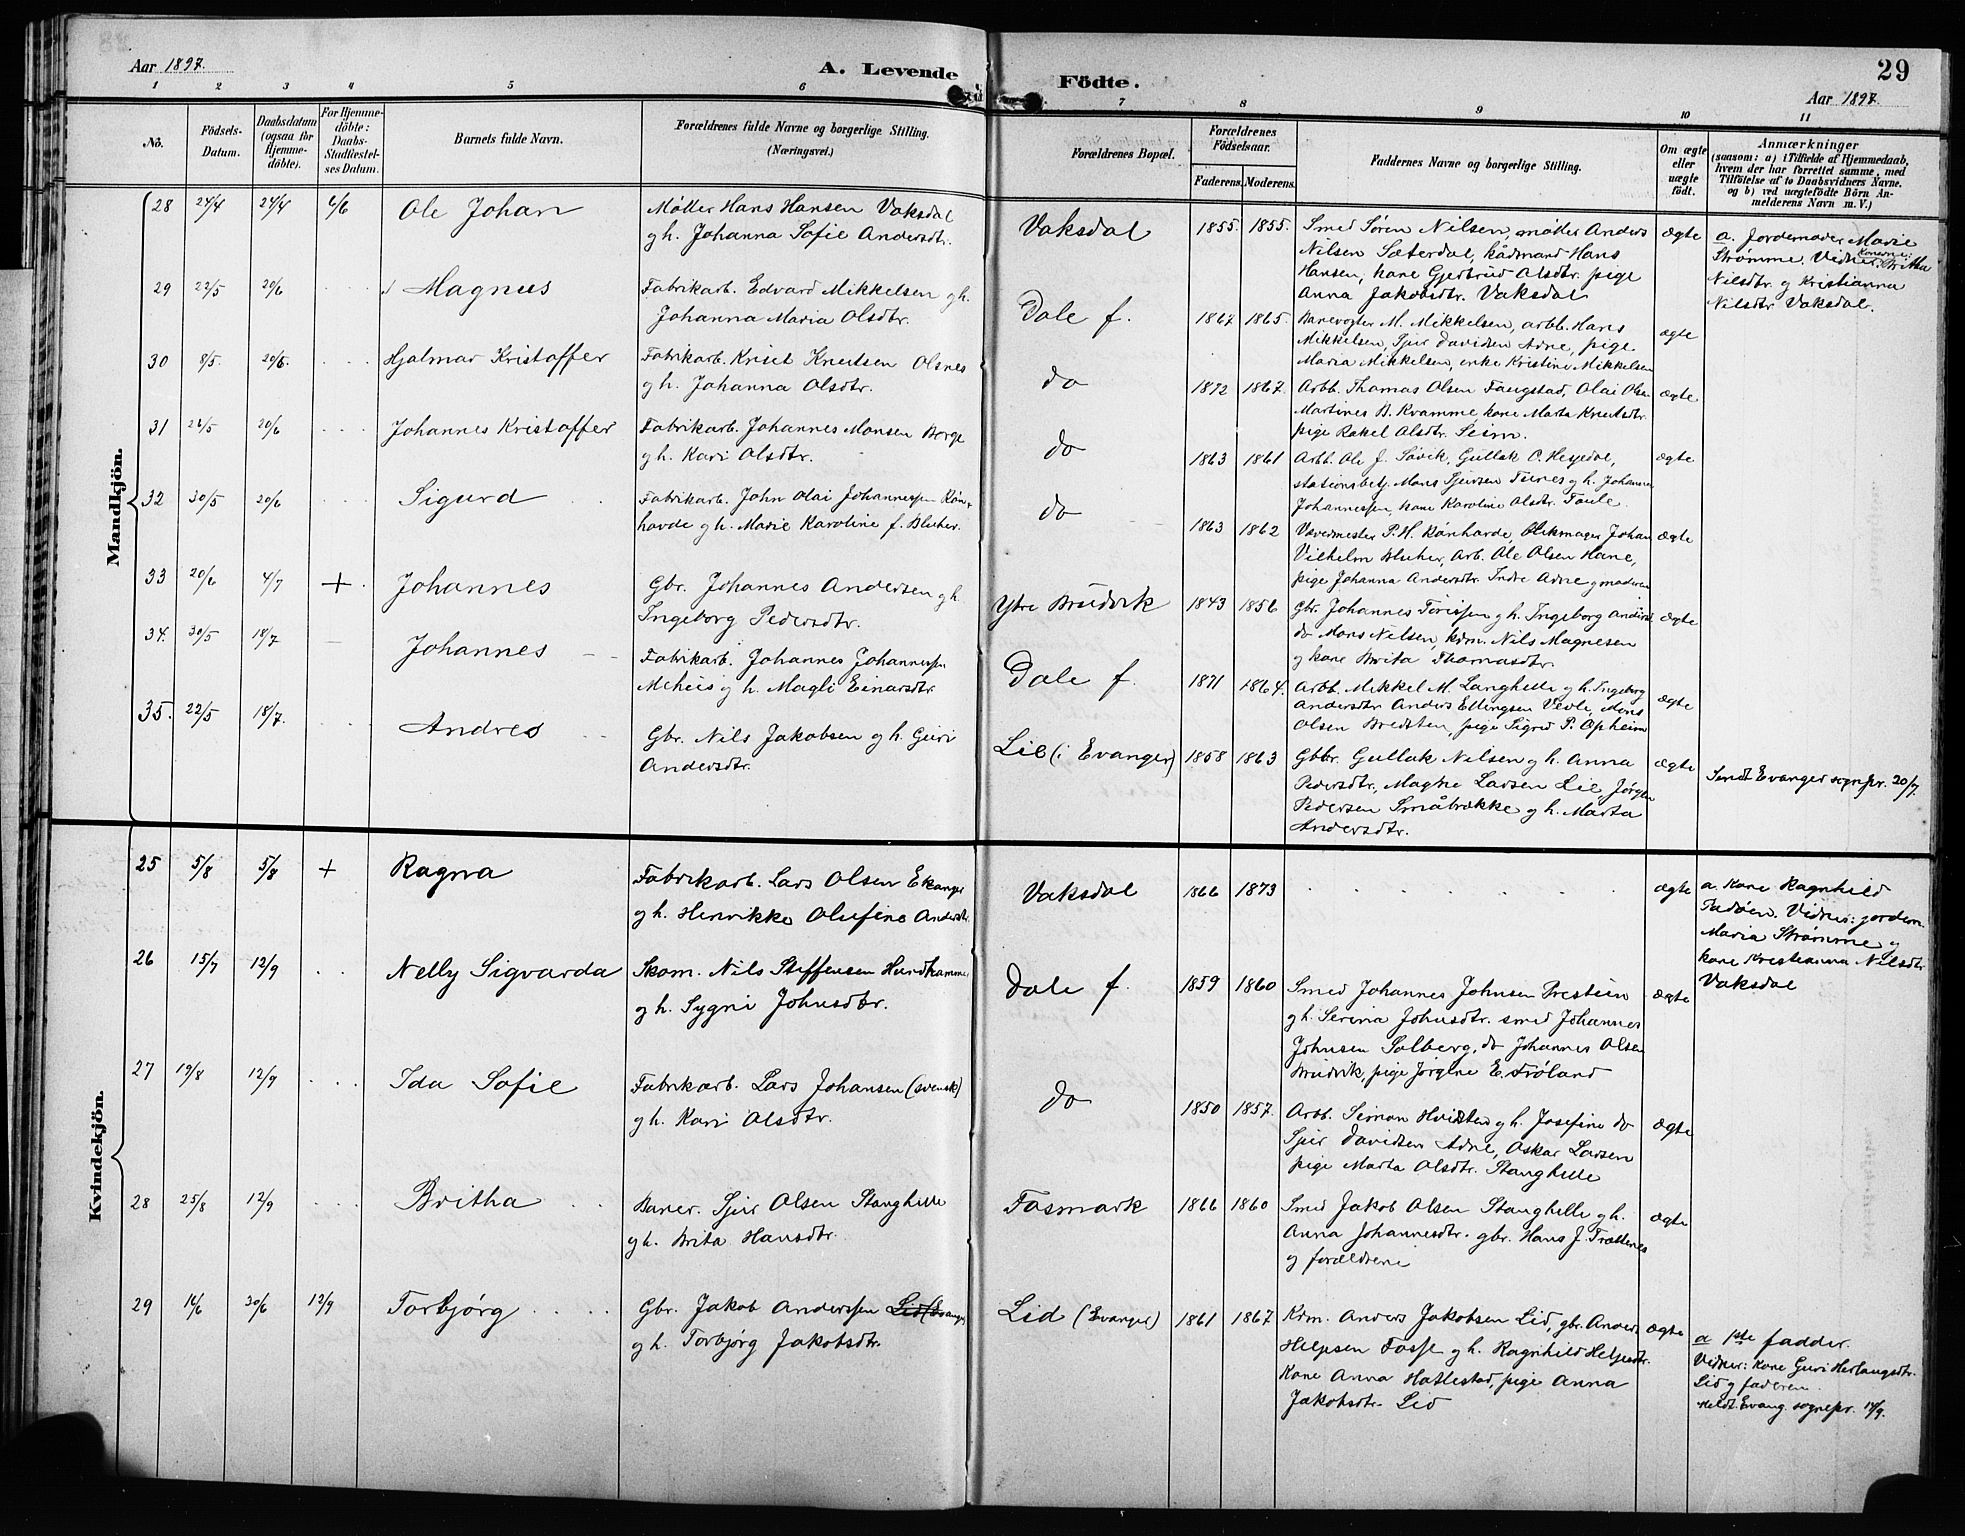 Aar 1897.
A. Levende Födte.
29
Aar 1897.
1 2 3 4 5 6 7 8 9 10 11
No.
Födsels-Datum.
Daabsdatum (ogsaa for Hjemme-döbte).
For Hjemme-döbte: Daabs-Stadfæstel-ses Datum.
Barnets fulde Navn.
Forældrenes fulde Navne og borgerlige Stilling.
(Næringsvei.)
Forældrenes Bopæl.
Forældrenes Födselsaar.
Faderens. Moderens.
Faddernes Navne og borgerlige Stilling.
Om ægte eller uægte født.
Anmærkninger
(saasom: a) i Tilfælde af Hjemmedaab, hvem der har forrettet samme, med Tilföielse af to Daabsvidners Navne, og b) ved uægtefödte Börn An-melderens Navn m. V.)
Mandkjön.
28 24/4 24/4 6/6 Ole Johan
Møller Hans Hansen Vaksdal
g h. Johanna Sofie Andersdtr.
Vaksdal 1855. 1855.
Smed Søren Nilsen, møller Anders
Nilsen Sæterdal, kådmand Hans
Hansen, kone Gjertrud Olsdtr. pige
Anna Jakobsdtr. Vaksdal
ægte
a. Jordemoder Marie
Strømme. Vidner: konerne: Britha
Nilsdtr. g Kristianna
Nilsdtr. Vaksdal.
29 22/5 20/6 Magnus
Fabrikarb. Edvard Mikkelsen g h.
Johanna Maria Olsdtr.
Dale f. 1867 1865.
Banevogter M. Mikkelsen, arbb. Hans
Mikkelsen, Sjur Davidsen Adne, pige
Maria Mikkelsen, enke Kristine Mikkelsen
ægte
30 8/5. 20/6. Hjalmar Kristoffer
Fabrikarb. Knut Knutsen Olsnes
g h. Johanna Olsdtr.
do 1872 1867.
Arbb. Thomas Olsen Faugstad, Olai Olsen
Martines B. Kvamme kone Marta Knutsdtr.
pige Rakel Olsdtr. Seim.
ægte
31 26/5 20/6 Johannes Kristoffer
Fabrikarb. Johannes Monsen Borge
g h. Kari Olsdtr.
do 1863 1861
Arbb. Ole J. Søvik, Gullak O. Hesjedal,
stationsbetj. Mons Sjursen Tunes g h. Johanna
Johannessen, kone Karoline Olsdtr. Toule.
ægte
32 30/5 20/6 Sigurd
Fabrikarb. John Olai Johannessen Røn-
havde g h. Marie Karoline f. Blucher.
do 1863 1862
Vævermester P. H. Rønhavde, blikmager Johan
Vilhelm Blucher, Arb. Ole Olsen Hane,
pige Johanna Andersdtr. Indre Adne g moderen
ægte
33 20/6 4/7 + Johannes
Gbr. Johannes Andersen g h.
Ingeborg Pedersdtr.
Ytre Brudvik 1843 1856
Gbr. Johannes Torissen g h. Ingeborg Andersd.
do Mons Nilsen, kdm. Nils Magnesen
g kone Brita Thomasdtr.
ægte
34. 30/5 18/7 Johannes
Fabrikarb. Johannes Johannessen
Mehus g h. Magli Einarsdtr.
Dale f. 1871 1864.
Arbb. Mikkel M. Langhelle g h. Ingeborg
Andersdtr. Anders Ellingsen Vevle, Mons
Olsen Bredsten, pige Sigrid P. Opheim
ægte
35. 22/5 18/7. Andres
Gbr. Nils Jakobsen g h. Guri
Andersdtr.
Lie (i Evanger) 1858 1863
Gbbr. Gullak Nilsen g h. Anna
Pedersdtr., Magne Larsen Lie, Jørgen
Pedersen Småbrække g h. Marta
Andersdtr.
ægte
Sendt Evanger sognepr. 20/7.
Kvindekjön.
25 5/8 5/8 + Ragna
Fabrikarb. Lars Olsen Ekanger
g h. Henrikke Olufine Andersdtr.
Vaksdal 1866 1873
ægte
a. kone Ragnhild
Tadøen. Vidner: jordem.
Maria Strømme g
kone Kristianna Nilsdtr.
Vaksdal
26 15/7 12/9 Nelly Sigvarda
Skom. Nils Steffensen Hundhammer
g h. Sygni Johnsdtr.
Dale f. 1859 1860
Smed Johannes Johnsen Prestun
g h. Serina Johnsdtr. smed Johannes
Johnsen Solberg, do Johannes Olsen
Brudvik, pige Jørgine E. Frøland
ægte
27 19/8 12/9 Ida Sofie
Fabrikarb. Lars Johansen (svensk)
g h. Kari Olsdtr.
do 1850 1857.
Arb. Simon Hvidsten g h. Josefine do
Sjur Davidsen Adne, Oskar Larsen
pige Marta Olsdtr. Stanghelle
ægte
28 25/8 12/9 Britha
Baner. Sjur Olsen Stanghelle
g h. Brita Hansdtr.
Fosmark 1866 1860
Smed Jakob Olsen Stanghelle g h.
Anna Johannesdtr. gbr. Hans J. Trættenes
g forældrene
ægte
29 16/6 30/6 12/9 Torbjørg
Gbr. Jakob Anderssen Lid (Evanger)
g h. Torbjørg Jakobsdtr.
Lid (Evanger) 1861 1867
Kdm. Anders Jakobsen Lid, gbr. Anders
Helgesen Fosse g h. Ragnhild Helgesdtr.
Kone Anna Hatlestad, pige Anna
Jakobsdtr. Lid
ægte
a 1ste fadder.
Vidner: Kone Guri Herlaugsdtr.
Lid g faderen.
Meldt Evang. sognepr. 14/9.